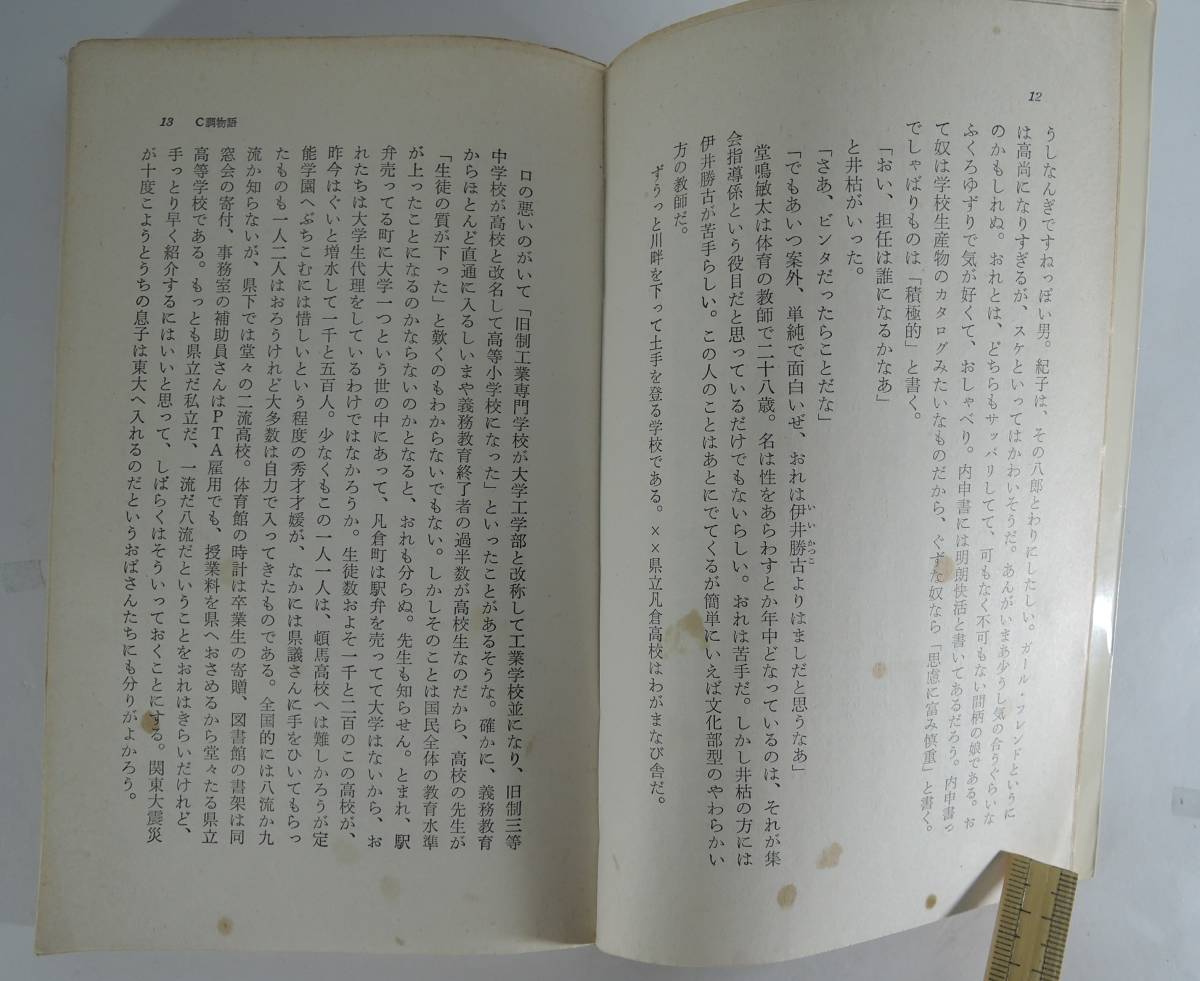 12
うしなんぎですねっぽい男。紀子は、その八郎とわりにしたしい。ガール・フレンドというに
は高尚になりすぎるが、スケといってはかわいそうだ。あんがいまあ少うし気の合うぐらいな
のかもしれぬ。おれとは、どちらもサッパリしてて、可もなく不可もない間柄の娘である。お
ふくろゆずりで気が好くて、おしゃべり。内申書には明朗快活と書いてあるだろう。内申書っ
て奴は学校生産物のカタログみたいなものだから、ぐずな奴なら「思慮に富み慎重」と書く。
でしゃばりものは「積極的」と書く。
「おい、担任は誰になるかなあ」
と井枯がいった。
「さあ、ビンタだったらことだな」
「でもあいつ案外、単純で面白いぜ、おれは伊井勝古よりはましだと思うなあ」
いいかつこ
堂鳴敏太は体育の教師で二十八歳。名は性をあらわすとか年中どなっているのは、それが集
会指導係という役目だと思っているだけでもないらしい。おれは苦手だ。しかし井枯の方には
伊井勝古が苦手らしい。この人のことはあとにでてくるが簡単にいえば文化部型のやわらかい
方の教師だ。
ずうっと川畔を下って土手を登る学校である。××県立凡倉高校はわがまなび舎だ。
13 C調物語
口の悪いのがいて「旧制工業専門学校が大学工学部と改称して工業学校並になり、旧制三等
中学校が高校と改名して高等小学校になった」といったことがあるそうな。確かに、義務教育
からほとんど直通に入るしいまや義務教育終了者の過半数が高校生なのだから、高校の先生が
「生徒の質が下った」と歎くのもわからないでもない。しかしそのことは国民全体の教育水準
が上ったことになるのかならないのかとなると、おれも分らぬ。先生も知らせん。とまれ、駅
弁売ってる町に大学一つという世の中にあって、凡倉町は駅弁を売ってて大学はないから、お
れたちは大学生代理をしているわけではなかろうか。生徒数およそ一千と二百のこの高校が、
昨今はぐいと増水して一千と五百人。少なくもこの一人一人は、頓馬高校へは難しかろうが定
能学園へぶちこむには惜しいという程度の秀才才媛が、なかには県議さんに手をひいてもらっ
たものも一人二人はおろうけれど大多数は自力で入ってきたものである。全国的には八流か九
流か知らないが、県下では堂々の二流高校。体育館の時計は卒業生の寄贈、図書館の書架は同
窓会の寄付、事務室の補助員さんはPTA雇用でも、授業料を県へおさめるから堂々たる県立
高等学校である。もっとも県立だ私立だ、一流だ八流だということをおれはきらいだけれど、
手っとり早く紹介するにはいいと思って、しばらくはそういっておくことにする。関東大震災
が十度こようとうちの息子は東大へ入れるのだというおばさんたちにも分りがよかろう。